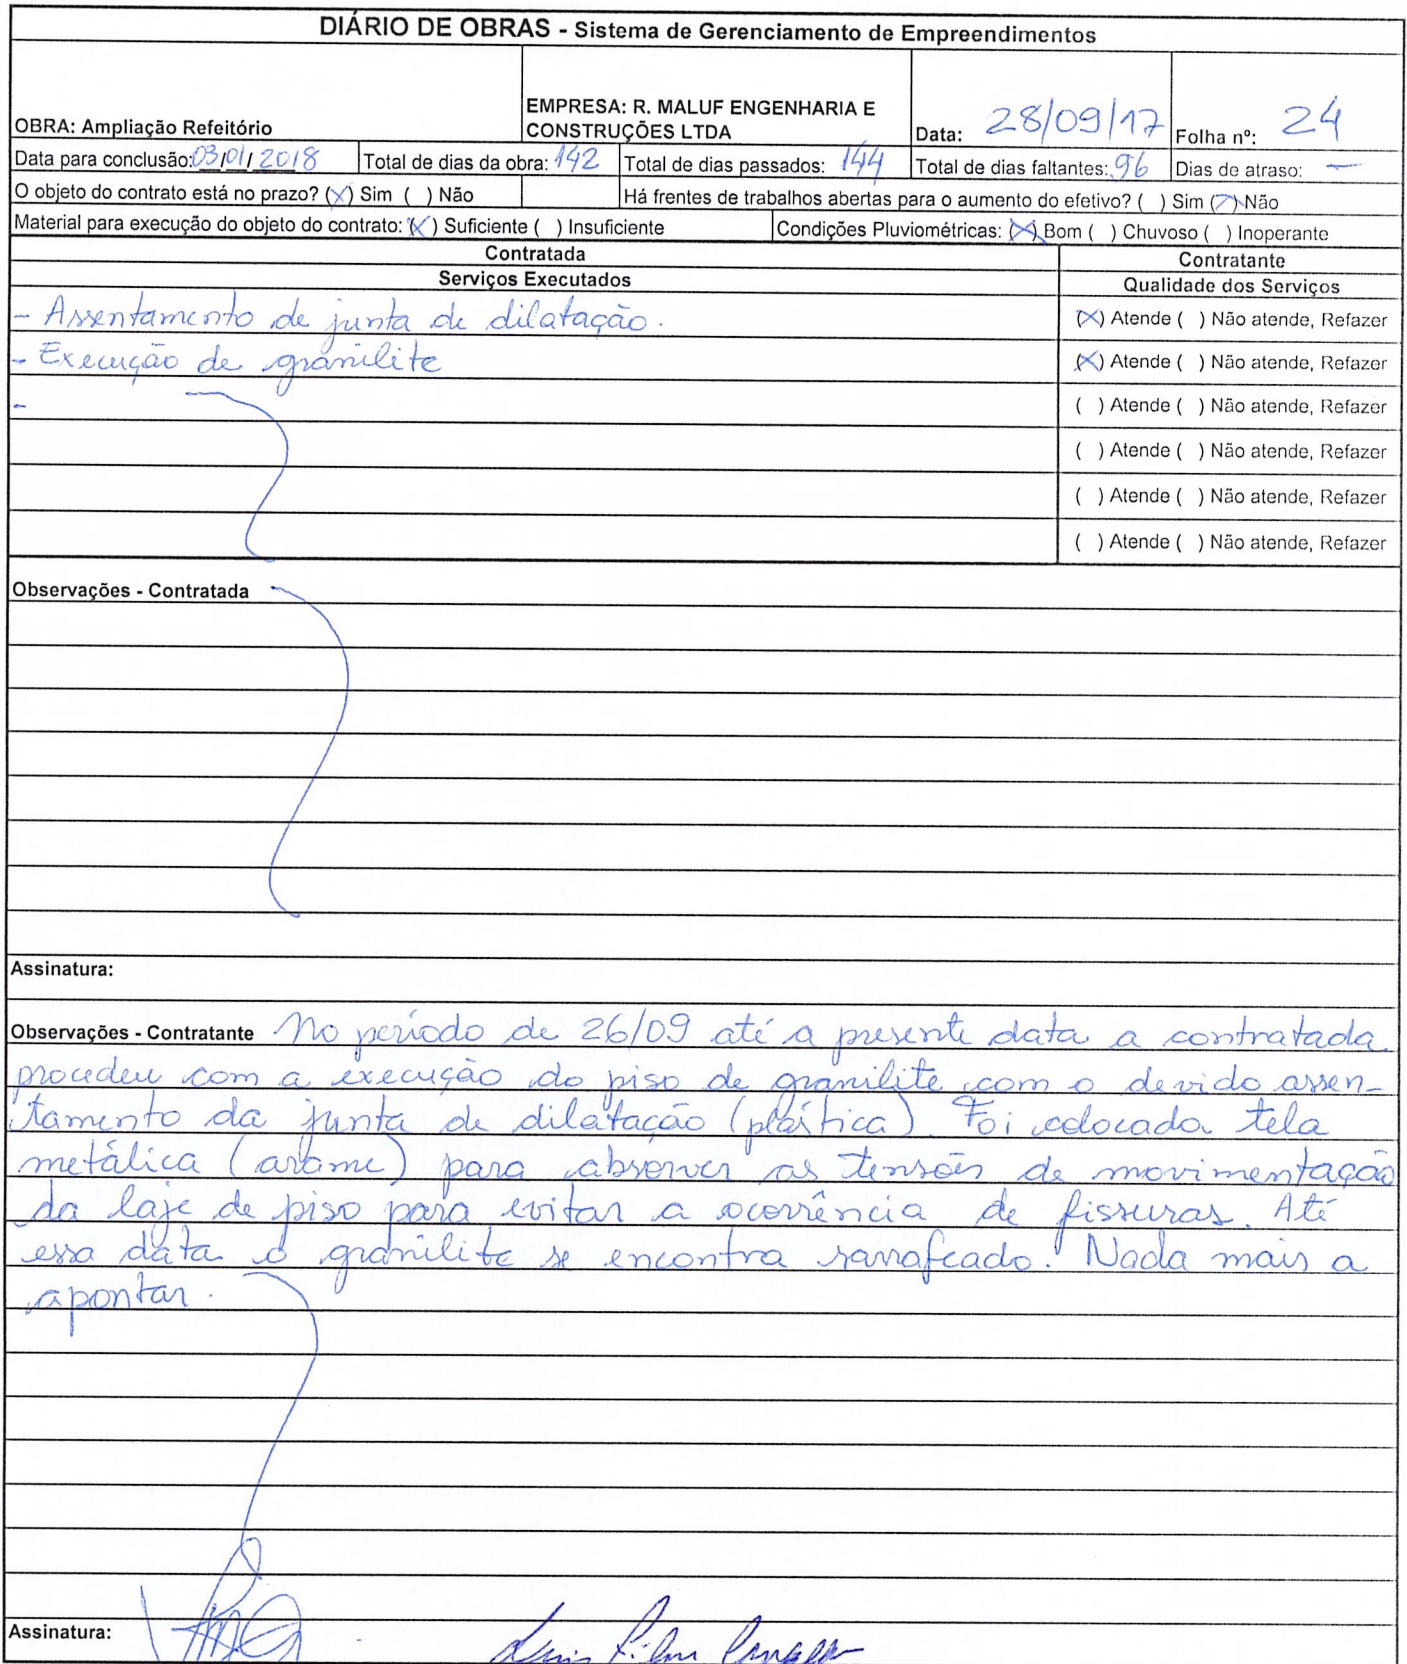 DIÁRIO DE OBRAS - Sistema de Gerenciamento de Empreendimentos
OBRA: Ampliação Refeitório
EMPRESA: R. MALUF ENGENHARIA E
CONSTRUÇÕES LTDA
Data: 28/09/17
Folha nº: 24
Data para conclusão: 03/01/2018
Total de dias da obra: 142
Total de dias passados: 144
Total de dias faltantes: 96
Dias de atraso: —
O objeto do contrato está no prazo? (X) Sim ( ) Não
Há frentes de trabalhos abertas para o aumento do efetivo? ( ) Sim (X) Não
Material para execução do objeto do contrato: (X) Suficiente ( ) Insuficiente
Condições Pluviométricas: (X) Bom ( ) Chuvoso ( ) Inoperante
Contratada
Contratante
Serviços Executados
Qualidade dos Serviços
- Assentamento de junta de dilatação.
(X) Atende ( ) Não atende, Refazer
- Execução de granilite
(X) Atende ( ) Não atende, Refazer
-
( ) Atende ( ) Não atende, Refazer
( ) Atende ( ) Não atende, Refazer
( ) Atende ( ) Não atende, Refazer
( ) Atende ( ) Não atende, Refazer
Observações - Contratada
Assinatura:
Observações - Contratante No período de 26/09 até a presente data a contratada
procedeu com a execução do piso de granilite com o devido assen-
tamento da junta de dilatação (plástica). Foi colocada tela
metálica (arame) para absorver as tensões de movimentação
da laje de piso para evitar a ocorrência de fissuras. Até
essa data o granilite se encontra sarrafeado. Nada mais a
apontar.
Assinatura: